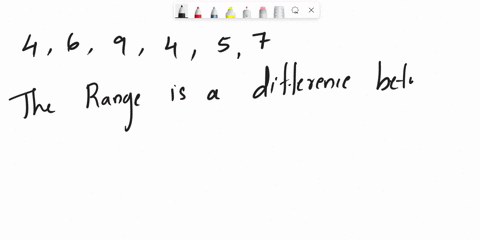 4, 6, 9, 4, 5, 7
The Range is a difference bet